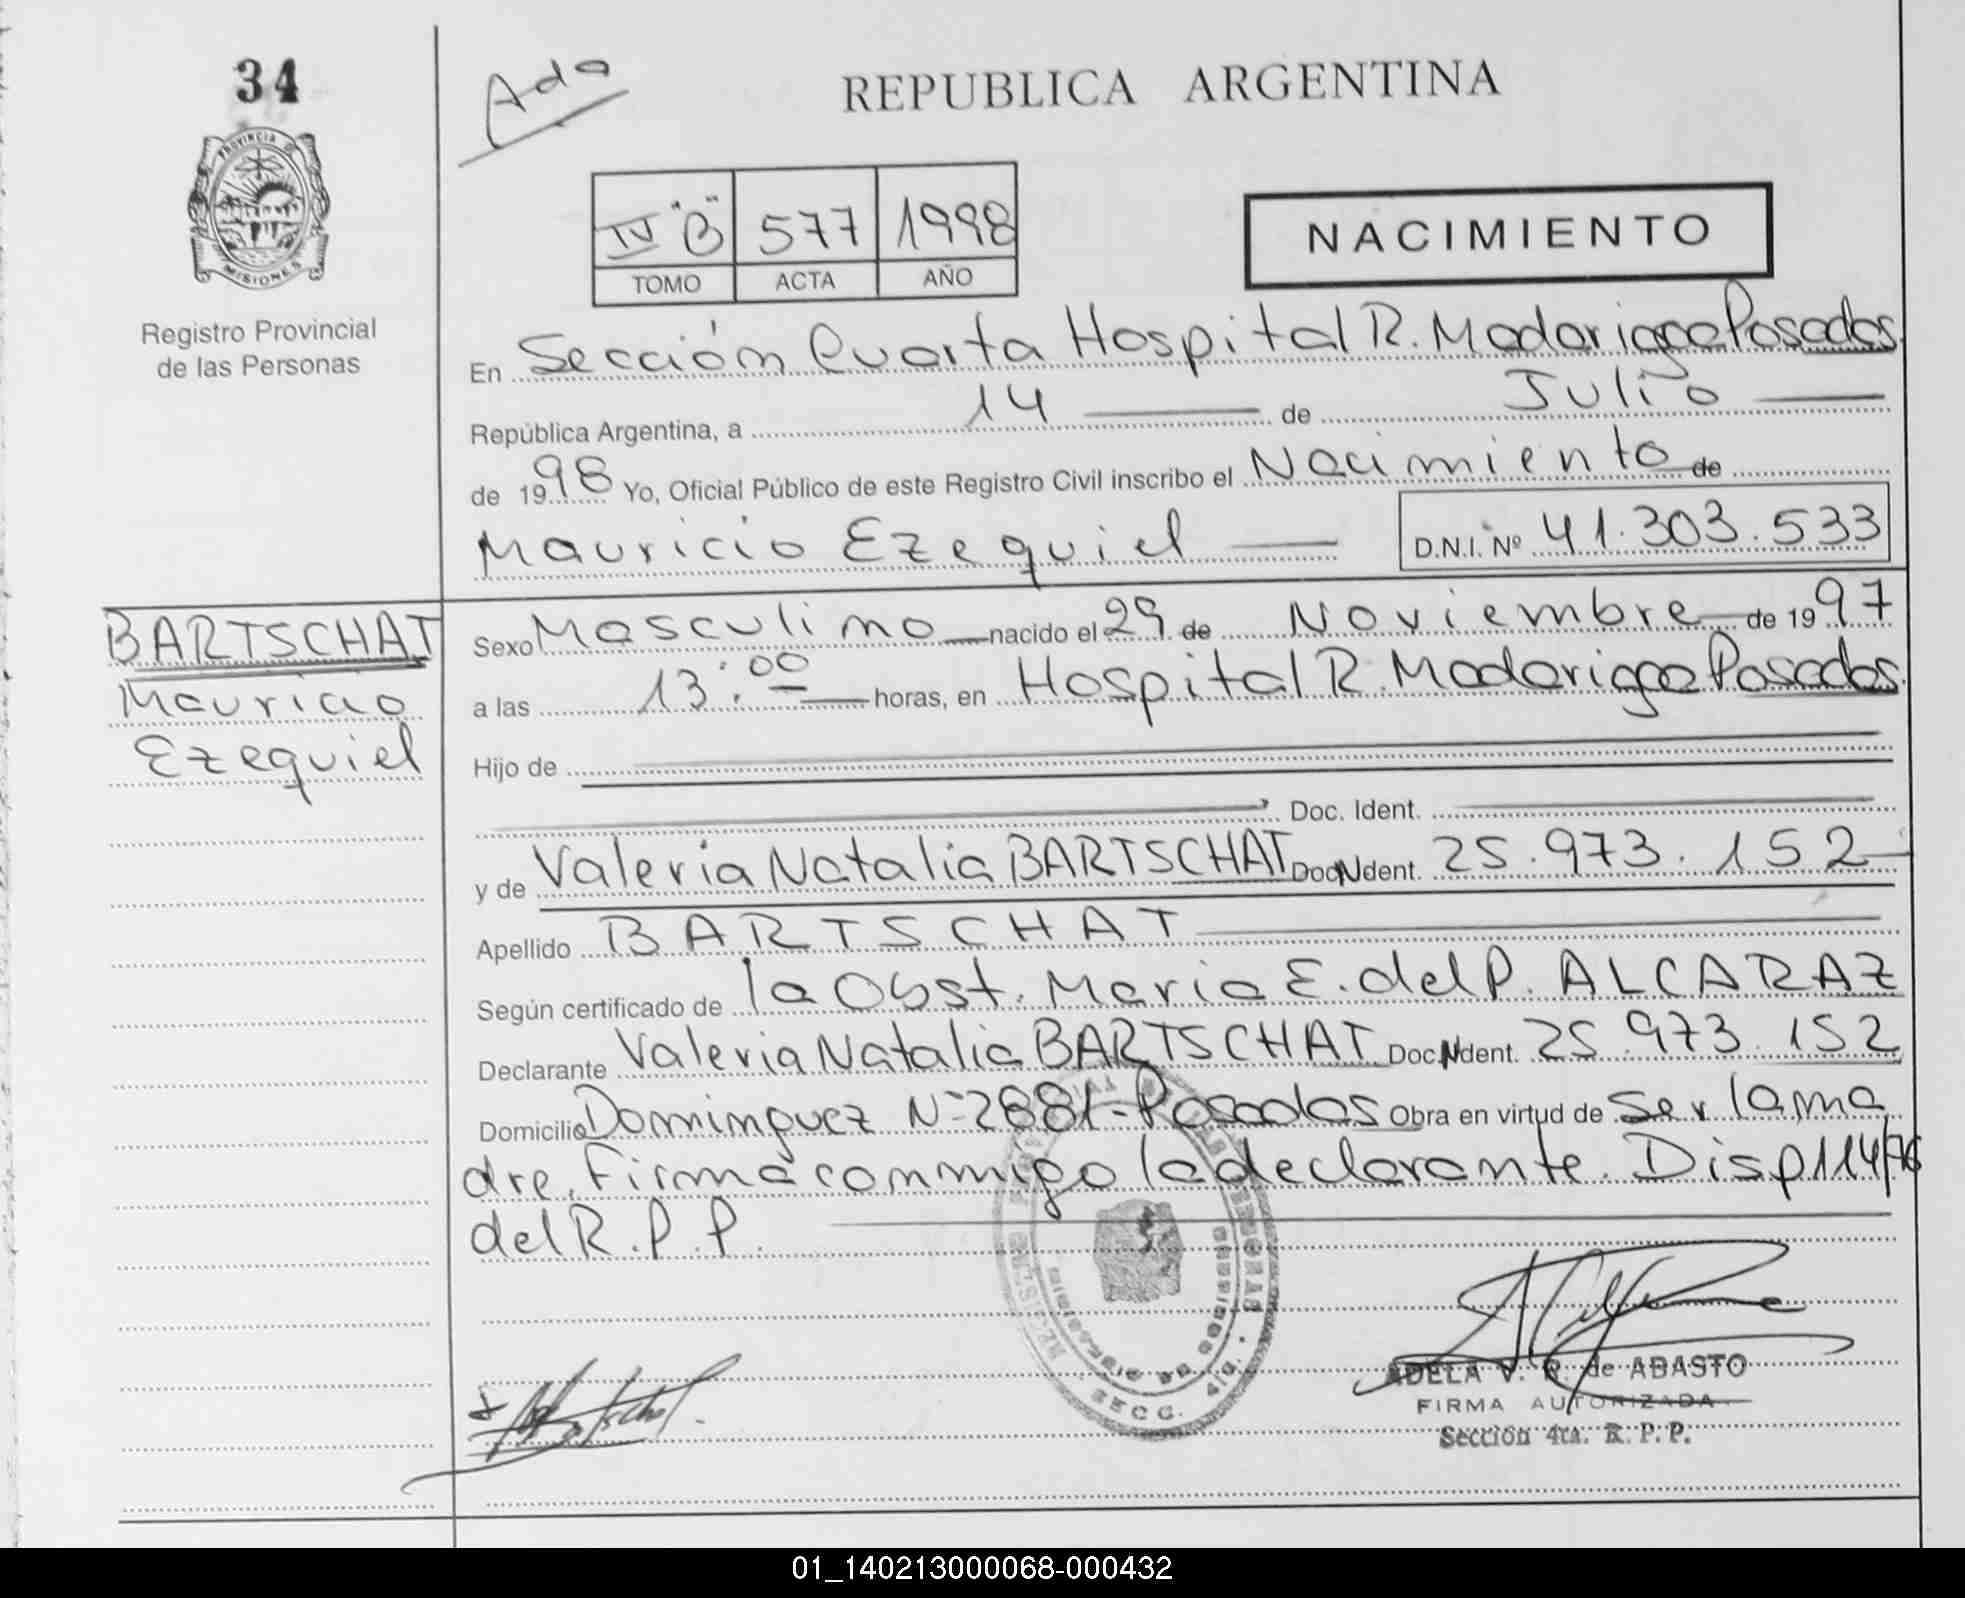 34
PROVINCIA DE
MISIONES
Registro Provincial
de las Personas
Ada
REPUBLICA ARGENTINA
IV "B" 577 1998
TOMO ACTA AÑO
NACIMIENTO
En Sección Cuarta Hospital R. Madariaga Posadas
República Argentina, a 14 de Julio
de 1998 Yo, Oficial Público de este Registro Civil inscribo el Nacimiento de
Mauricio Ezequiel D.N.I. Nº 41.303.533
BARTSCHAT
Mauricio
Ezequiel
Sexo Masculino nacido el 29 de Noviembre de 1997
a las 13:00 horas, en Hospital R. Madariaga Posadas.
Hijo de
Doc. Ident.
y de Valeria Natalia BARTSCHAT Doc. Ident. 25.973.152
Apellido BARTSCHAT
Según certificado de la Obst. Maria E. del P. ALCARAZ
Declarante Valeria Natalia BARTSCHAT Doc. Ident. 25.973.152
Domicilio Dominguez Nº 2881-Posadas Obra en virtud de Ser la ma
dre. Firma conmigo la declarante. Disp 114/76
del R.P.P.
SECC. 4ta.
ADELA V. R. de ABASTO
FIRMA AUTORIZADA
Sección 4ta. R. P. P.
01_140213000068-000432